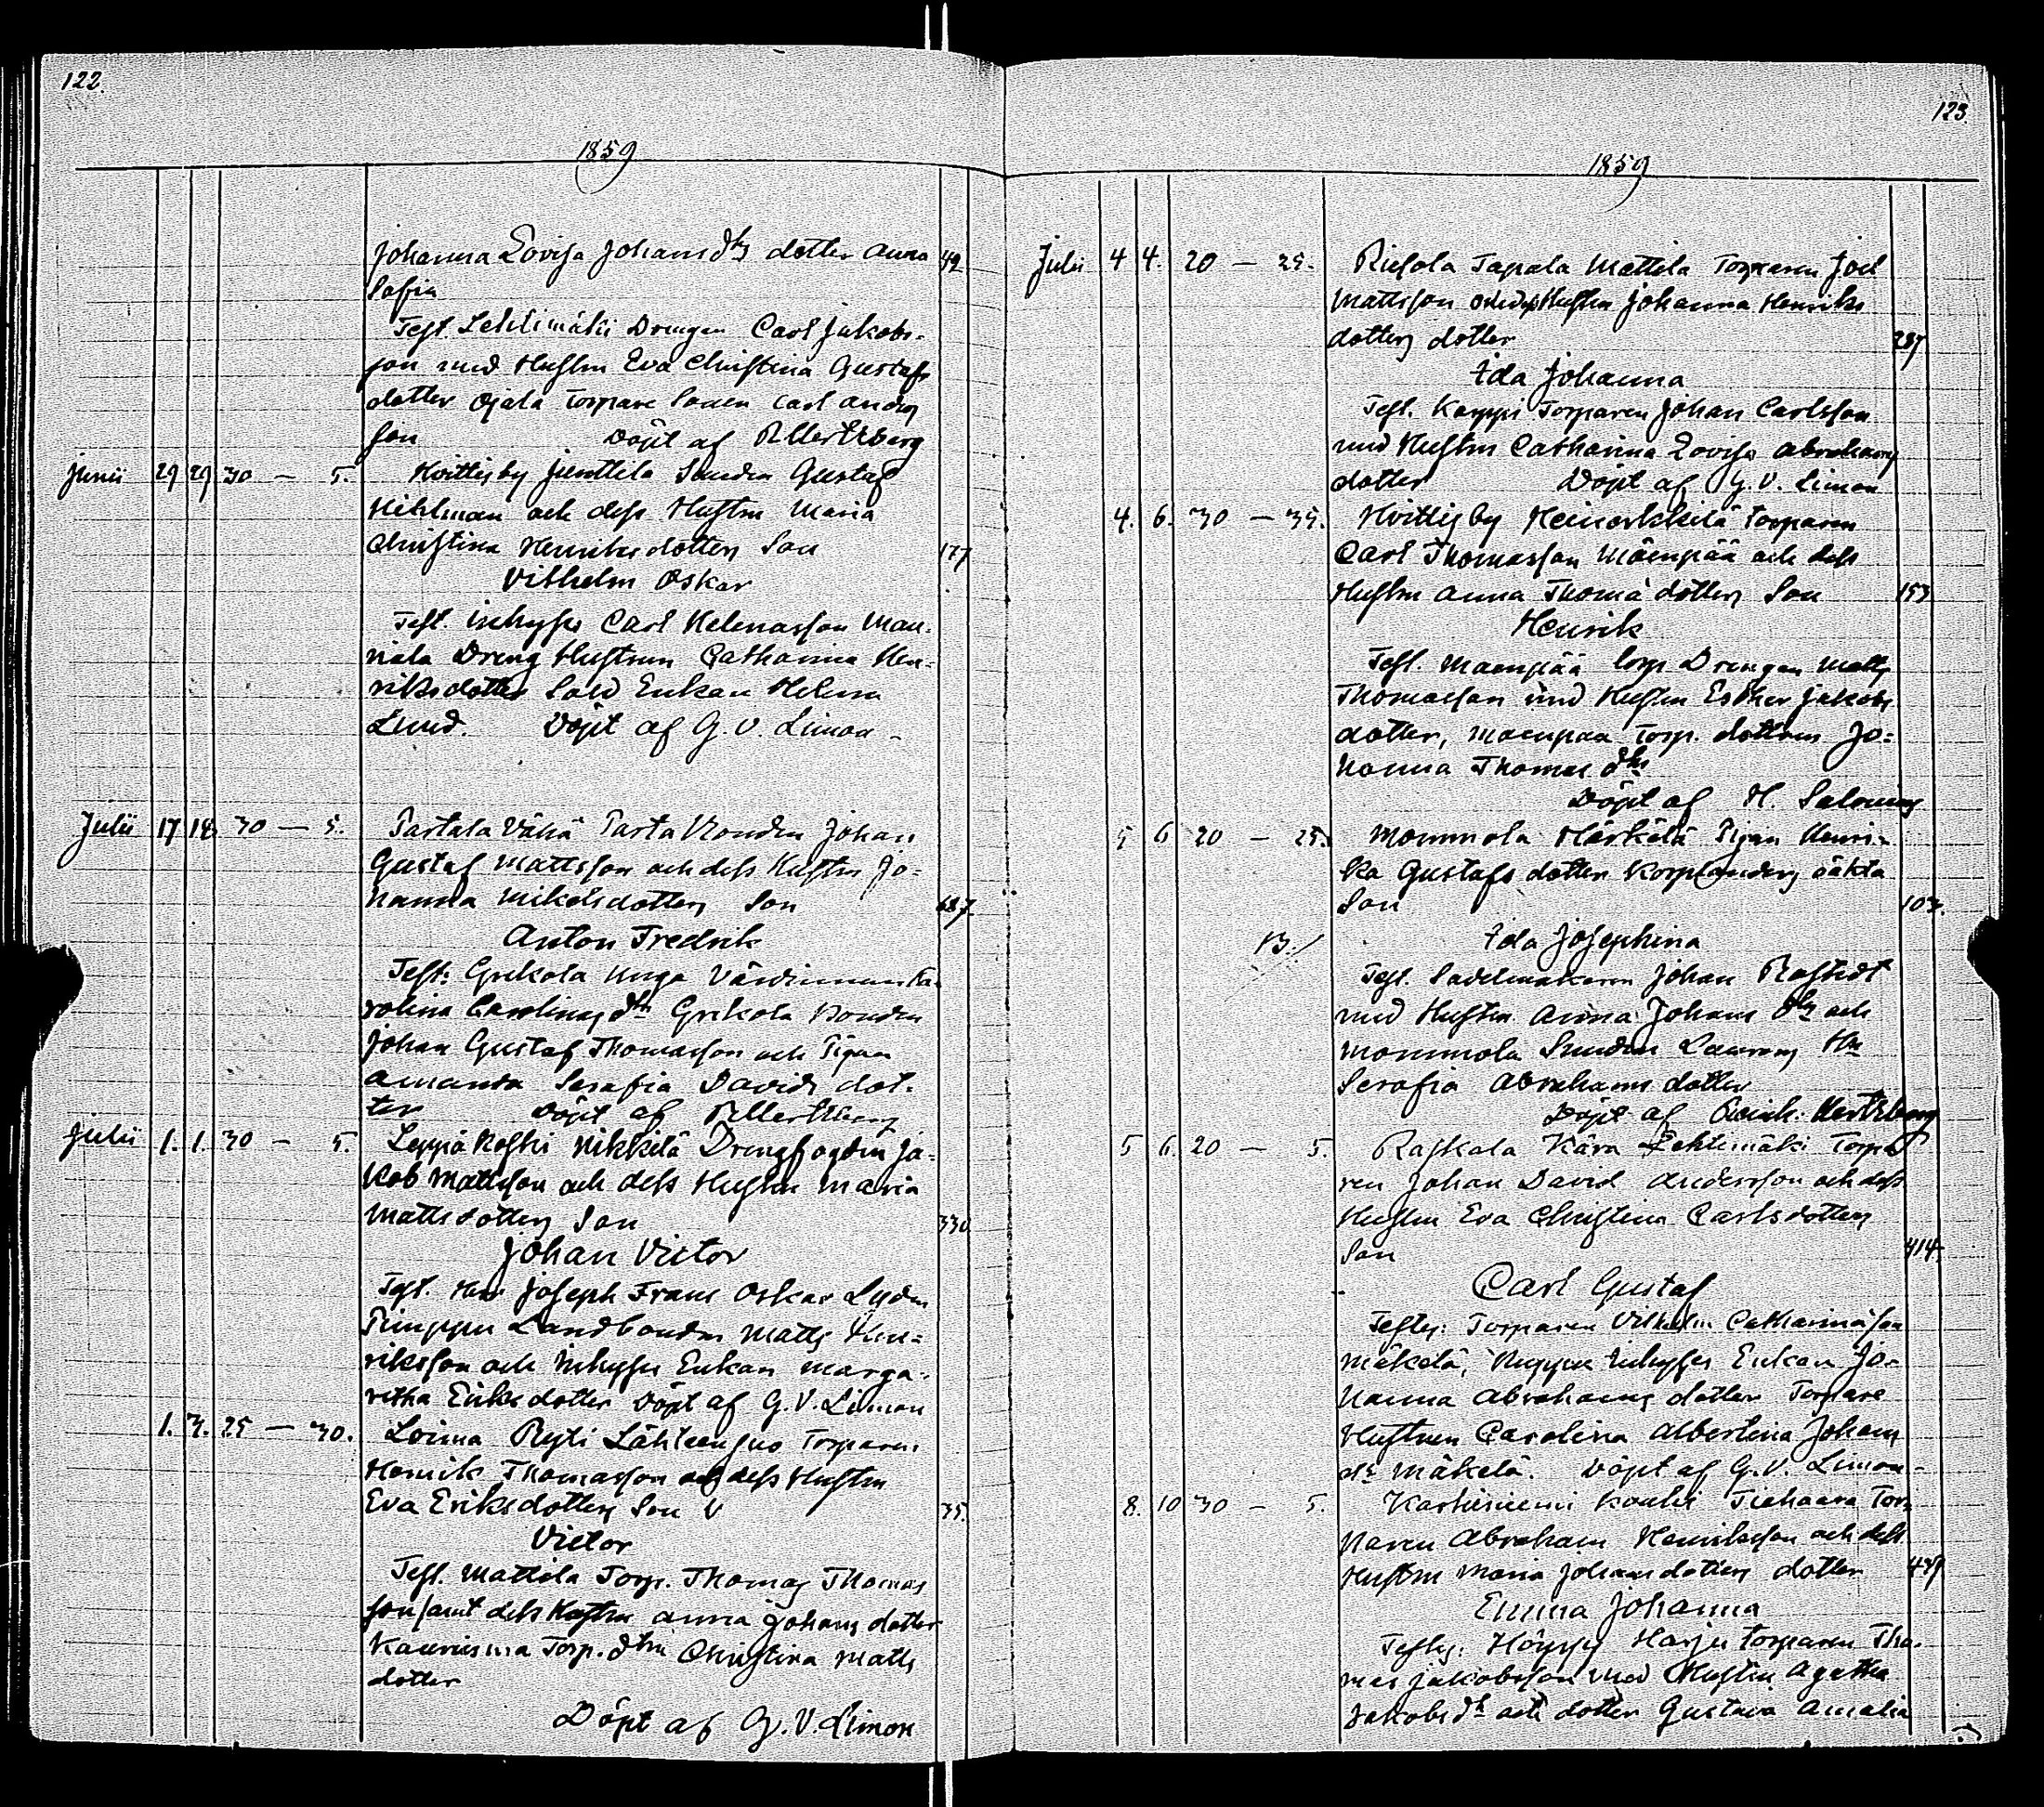 122.
1859
Johanna Lovisa Johans dtrs dotter Anna 49
Sofia
Test. Lehtimäki Drengen Carl Jakobs-
son med Hustru Eva Christina Gustafs
dotter Ojala Torpare Sonen Carl Anders
son Döpt af R Mertzberg
Junii 29 29 30 — 5. Kvittisby Junttila Gustaf
och dess Hustru Maria
Christina Henriksdotters Son 177
Vilhelm Oskar
Test. Inhyses Carl Helenasson Mau-
riala Dreng Hustrun Catharina Hen-
riksdotter Sold Enkan Helena
Lund. Döpt af G. V. Limon
Julii 17 18 30 — 5. Tartala Vähä Tarta Bonden Johan
Gustaf Mattsson och dess Hustru Jo-
hanna Mikelsdotters Son 687.
Anton Fredrik
Test: Grekola Unga Värdinnan Ka-
rolina Carolinas dtr Grekola Bonden
Johan Gustaf Thomasson och Pigan
Amanda Serafia Davids dot-
ter Döpt af R Mertzberg
Julii 1. 1. 30 — 5. Leppäkoski Nikkilä Drengfogden Ja-
kob Mattsson och dess Hustru Maria
Mattsdotters Son 330
Johan Victor
Test. Herr Joseph Frans Oskar Lyden
Pimppu Landbonden Matts Hen-
riksson och Inhyses Enkan Marga-
retha Eriksdotter Döpt af G. V. Limon
1. 3. 25 — 30. Loima Ryti Lähteensuo Torparen
Henrik Thomasson och dess Hustru
Eva Eriksdotters Son V 35.
Victor
Test. Mattila Torp. Thomas Thomas
son samt dess Hustru Anna Johans dotter
Torp. dtrn Christina Matts
dotter
Döpt af G. V. Limon
123.
1859
Julii 4 4. 20 — 25. Tapala Mattila Torparen Joel
Mattsson och dess Hustru Johanna Henriks
dotters dotter 287
Ida Johanna
Test. Karppi Torparen Johan Carlsson
med Hustru Catharina Lovisa Abrahams
dotter Döpt af G. V. Limon
4. 6. 30 — 35. Kvittisby Heinorkkilä Torparen
Carl Thomasson Mäenpää och dess
Hustru Anna Thomä dotters Son 153
Henrik
Test. Maenpää Torp Drengen Matts
Thomasson med Hustru Esther Jakobs
dotter, Maenpää Torp. dottern Jo-
hanna Thomas dtr
Döpt af H. Salonius
5 6 20 — 25. Mommola Härkälä Pigan Henri-
ka Gustafs dotter oäkta
Son 103.
B./ Ida Josephina
Test. Sadelmakaren Johan Rostedt
med Hustru Anna Johans dtr och
Mommola Laurens Hu
Serafia Abrahams dotter
Döpt af Mertzberg
5 6 20 — 5. Raskala Kära Lehtimäki Torpa
ren Johan David Andersson och dess
Hustru Eva Christina Carlsdotters
Son 414.
Carl Gustaf
Testes: Torparen Vilhelm Catharinasson
Mäkelä, Inhyses Enkan Jo-
hanna Abrahams dotter Torpare
Hustrun Carolina Albertina Johans
dr Mäkelä. Döpt af G. V. Limon
8. 10 30 — 5. Karhiniemi Kouhi Tiehaara Tor-
paren Abraham Henriksson och dess
Hustru Maria Johansdotters dotter 439
Emma Johanna
Testes: Höyssy Harju Torparen Tho-
mas Jakobsson med Hustru Agatha
Jakobs dr och dotter Gustava Amalia